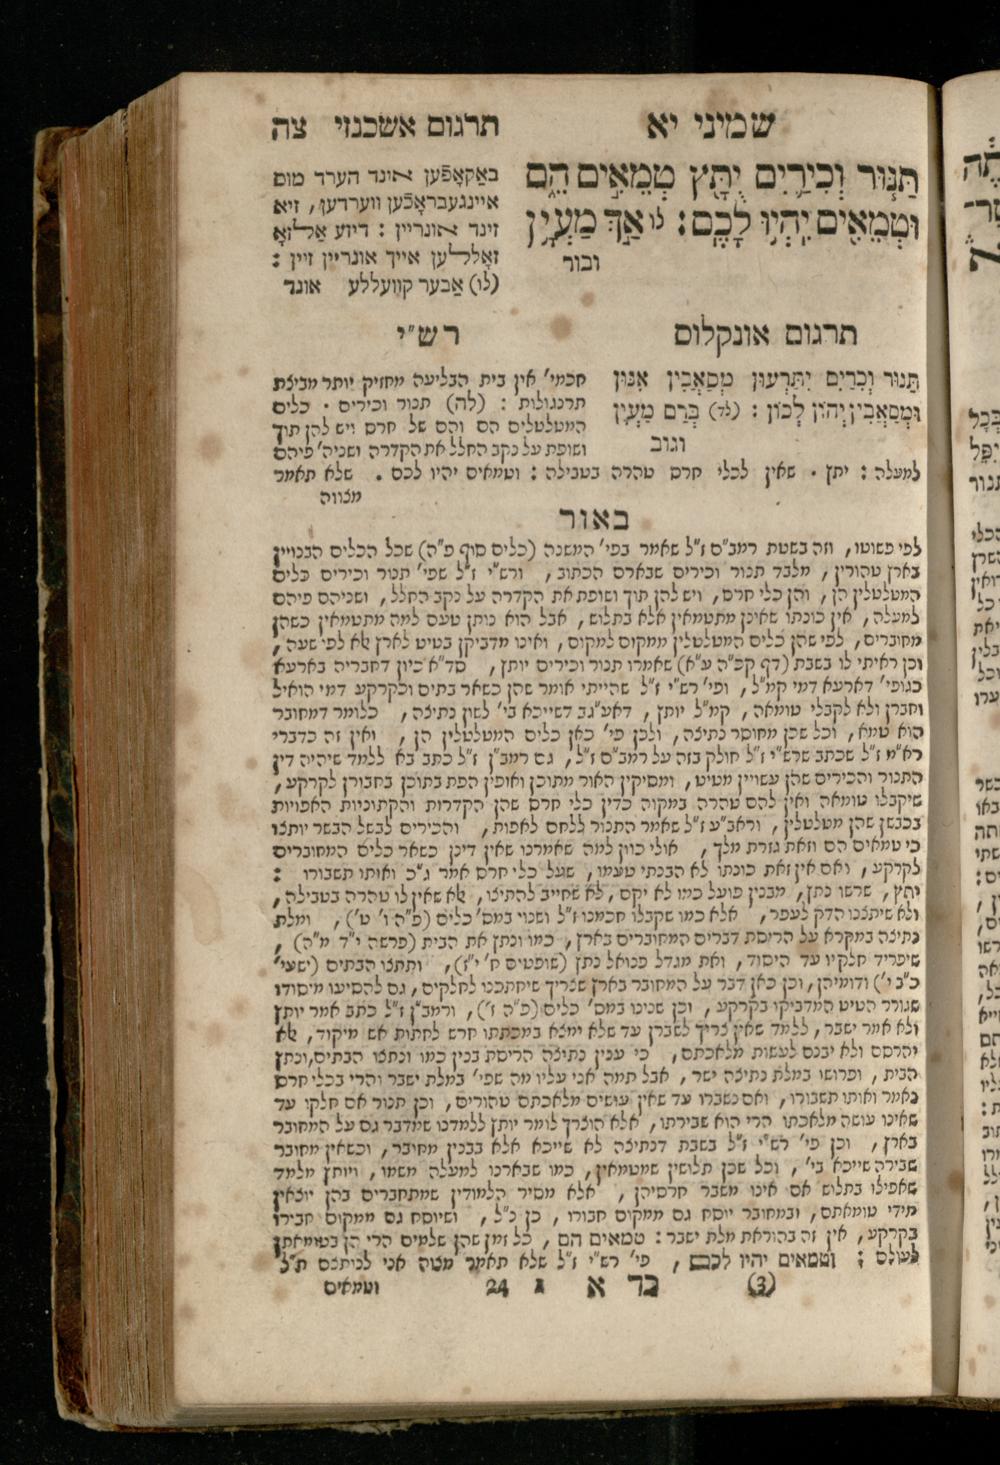 שמיני יא תרגום אשכנזי צה
תַּנּוּר וְכִירַיִם יֻתָּץ טְמֵאִים הֵם
וּטְמֵאִים יִהְיוּ לָכֶם: לו אַךְ מַעְיָן
ובור
באַקאָפֿען אונד הערד מוס
איינגעבראָכֿען ווערדען, זיא
זינד אונריין : דיזע אַללזאָ
זאָללען אייך אונריין זיין :
(לו) אַבער קוועללע אונד
תרגום אונקלוס
תַּנּוּר וְכִירַיִם יִתָּרְעוּן מְסָאֲבִין אִנּוּן
וּמְסָאֲבִין יְהוֹן לְכוֹן : (לו) בְּרַם מַעְיָן
וגוב
רש"י
חכמי' אין בית הבליעה מחזיק יותר מביצת
תרנגולות : (לה) תנור וכירים . כלים
המטלטלים הם והם של חרס ויש להן תוך
ושופת על נקב החלל את הקדרה ושניה' פיהם
למעלה : יתץ . שאין לכלי חרס טהרה בטבילה : וטמאים יהיו לכם . שלא תאמר
מצווה
באור
לפי פשוטו, וזה בשטת רמב"ם ז"ל שאמר בפי' המשנה (כלים סוף פ"ה) שכל הכלים הבנויין
בארץ טהורין, מלבד תנור וכירים שבארם הכתוב, ורש"י ז"ל שפי' תנור וכירים כלים
המטלטלין הן, והן כלי חרס, ויש להן תוך ושופת את הקדרה על נקב החלל, ושניהם פיהם
למעלה, אין כונתו שאינן מתטמאין אלא בתלוש, אבל הוא נותן טעם למה מתטמאין כשהן
מחוברים, לפי שהן כלים המטלטלין ממקום למקום, ואינו מדביקן בטיט לארץ אלא לפי שעה,
וכן ראיתי לו בשבת (דף קכ"ה ע"א) שאמרו תנור וכירים יותץ, סד"א כיון דחבריה בארעא
כגופי' דארעא דמי קמ"ל, ופי' רש"י ז"ל שהייתי אומר שהן כשאר בתים וכקרקע דמי הואיל
וחברן ולא לקבלי טומאה, קמ"ל יותץ, דאע"גב דשייכא בי' לשון נתיצה, כלומר דמחובר
הוא טמא, וכל שכן מחוסר נתיצה, ולכן פי' כאן כלים המטלטלין הן, ואין זה כדברי
רא"ם ז"ל שכתב שרש"י ז"ל חולק בזה על רמב"ם ז"ל, גם רמב"ן ז"ל כתב בא ללמד שיהיה דין
התנור והכירים שהן עשויין מטיט, ומסיקין האור מתוכן ואופין הפת בתוכן בחבורן לקרקע,
שיקבלו טומאה ואין להם טהרה במקוה כדין כלי חרס שהן הקדרות והקתוניות האפויות
בכבשן שהן מטלטלין, וראב"ע ז"ל שאמר התנור ללחם לאפות, והכירים לבשל הבשר יותצו
כי טמאים הם וזאת גזרת מלך, אולי כוון למה שאמרנו שאין דינן כשאר כלים המחוברים
לקרקע, ואם אין זאת כונתו לא הבנתי טעמו, שעל כלי חרס אמר ג"כ ואותו תשבורו :
יתץ, שרשו נתץ, מבנין פועל כמו לא יקם, לא שחייב להתיצו, אלא שאין לו טהרה בטבילה,
ולא שיתצנו הדק לעפר, אלא כמו שקבלו חכמנו ז"ל ושנוי במס' כלים (פ"ה ו' ט'), ומלת
נתיצה במקרא על הריסת דברים המחוברים בארץ, כמו ונתץ את הבית (פרשה י"ד מ"ה),
שיפריד חלקיו עד היסוד, ואת מגדל פנואל נתץ (שופטים ח' י"ז), ותתצו הבתים (ישעי'
כ"ב י') ודומיהן, וכן כאן דבר על המחובר בארץ שצריך שיחתכנו לחלקים, גם להסיעו מיסודו
שגורר הטיט המדביקו בקרקע, וכן שנינו במס' כלים (פ"ה ז'), ורמב"ן ז"ל כתב אמר יותץ
ולא אמר ישבר, ללמד שאין צריך לשברן עד שלא ימצא במכתתו חרש לחתות אש מיקוד, אלא
יהרסם ולא יכנס לעשות מלאכתם, כי ענין נתיצה הריסת בנין כמו ונתצו הבתים, ונתץ
הבית, ופרושו במלת נתיצה ישר, אבל תמה אני עליו מה שפי' במלת ישבר והרי בכלי חרס
נאמר ואותו תשבורו, ואם נשברו עד שאין עושים מלאכתם טהורים, וכן תנור אם חלקו עד
שאינו עושה מלאכתו הרי הוא שבירתו, אלא הוצרך לומר יותץ ללמדנו שמדבר גם על המחובר
בארץ, וכן פי' רש"י ז"ל בשבת דנתיצה לא שייכא אלא בבנין מחיבר, וכשאין מחובר
שבירה שייכא בי', וכל שכן תלושין שמטמאין, כמו שבארנו למעלה משמו, ויותץ מלמד
שאפילו בתלוש אם אינו משבר חרסיהן, אלא מסיר הלמודין שמתחברים בהן יוצאין
מידי טומאתם, ובמחובר יוסח גם ממקום חבורו, כן נ"ל, ושיוסח גם ממקום חבירו
בקרקע, אין זה בהוראת מלת ישבר : טמאים הם, כל זמן שהן שלמים הרי הן בטומאתן
לעולם : וטמאים יהיו לכם, פי' רש"י ז"ל שלא תאמר מצוה אני לנותצם ת"ל
(3) כד א 24 וטמאים